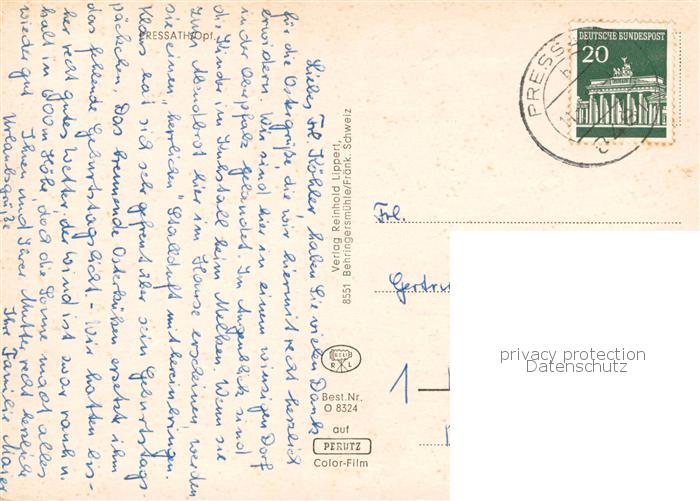 PRESSATH/Opf.
Liebes Frl. Köhler, haben Sie vielen Dank
für die Ostergrüße, die wir hiermit recht herzlich
erwidern. Wir sind hier in einem winzigen Dorf
in der Oberpfalz gelandet. Im Augenblick sind
die Kinder im Kuhstall beim Melken. Wenn sie
zum Abendbrot hier im Hause erscheinen werden
sie einen "herrlichen" Stallduft mit hereinbringen.
Klaus hat sich sehr gefreut über sein Geburtstags-
päckchen. Das brennende Osterhäschen ersetzte ihm
das fehlende Geburtstagslicht. - Wir hatten bis-
her recht gutes Wetter, der Wind ist zwar rauh u.
kalt in 600 m Höhe, doch die Sonne macht alles
wieder gut. Ihnen und Ihrer Mutter recht herzliche
Urlaubsgrüße
Ihre Familie Maier
Verlag Reinhold Lippert,
8551 Behringersmühle/Fränk. Schweiz
R L
Best.Nr.
O 8324
auf
PERUTZ
Color-Film
DEUTSCHE BUNDESPOST
20
PRESS
Frl.
Gertru
1
privacy protection
Datenschutz